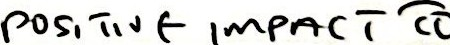 POSITIVE IMPACT